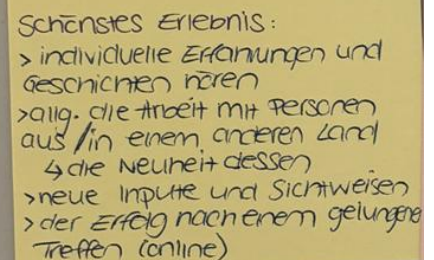 Schönstes Erlebnis:
> individuelle Erfahrungen und
Geschichten hören
> allg. die Arbeit mit Personen
aus / in einem anderen Land
↳ die Neuheit dessen
> neue Inpute und Sichtweisen
> der Erfolg nach einem gelungene
Treffen (online)